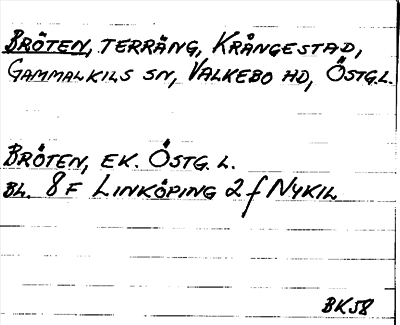 BRÖTEN, TERRÄNG, KRÅNGESTAD,
GAMMALKILS SN, VALKEBO HD, ÖSTG.L.
BRÖTEN, EK. ÖSTG. L.
BL. 8 F LINKÖPING 2 f NYKIL
BK58